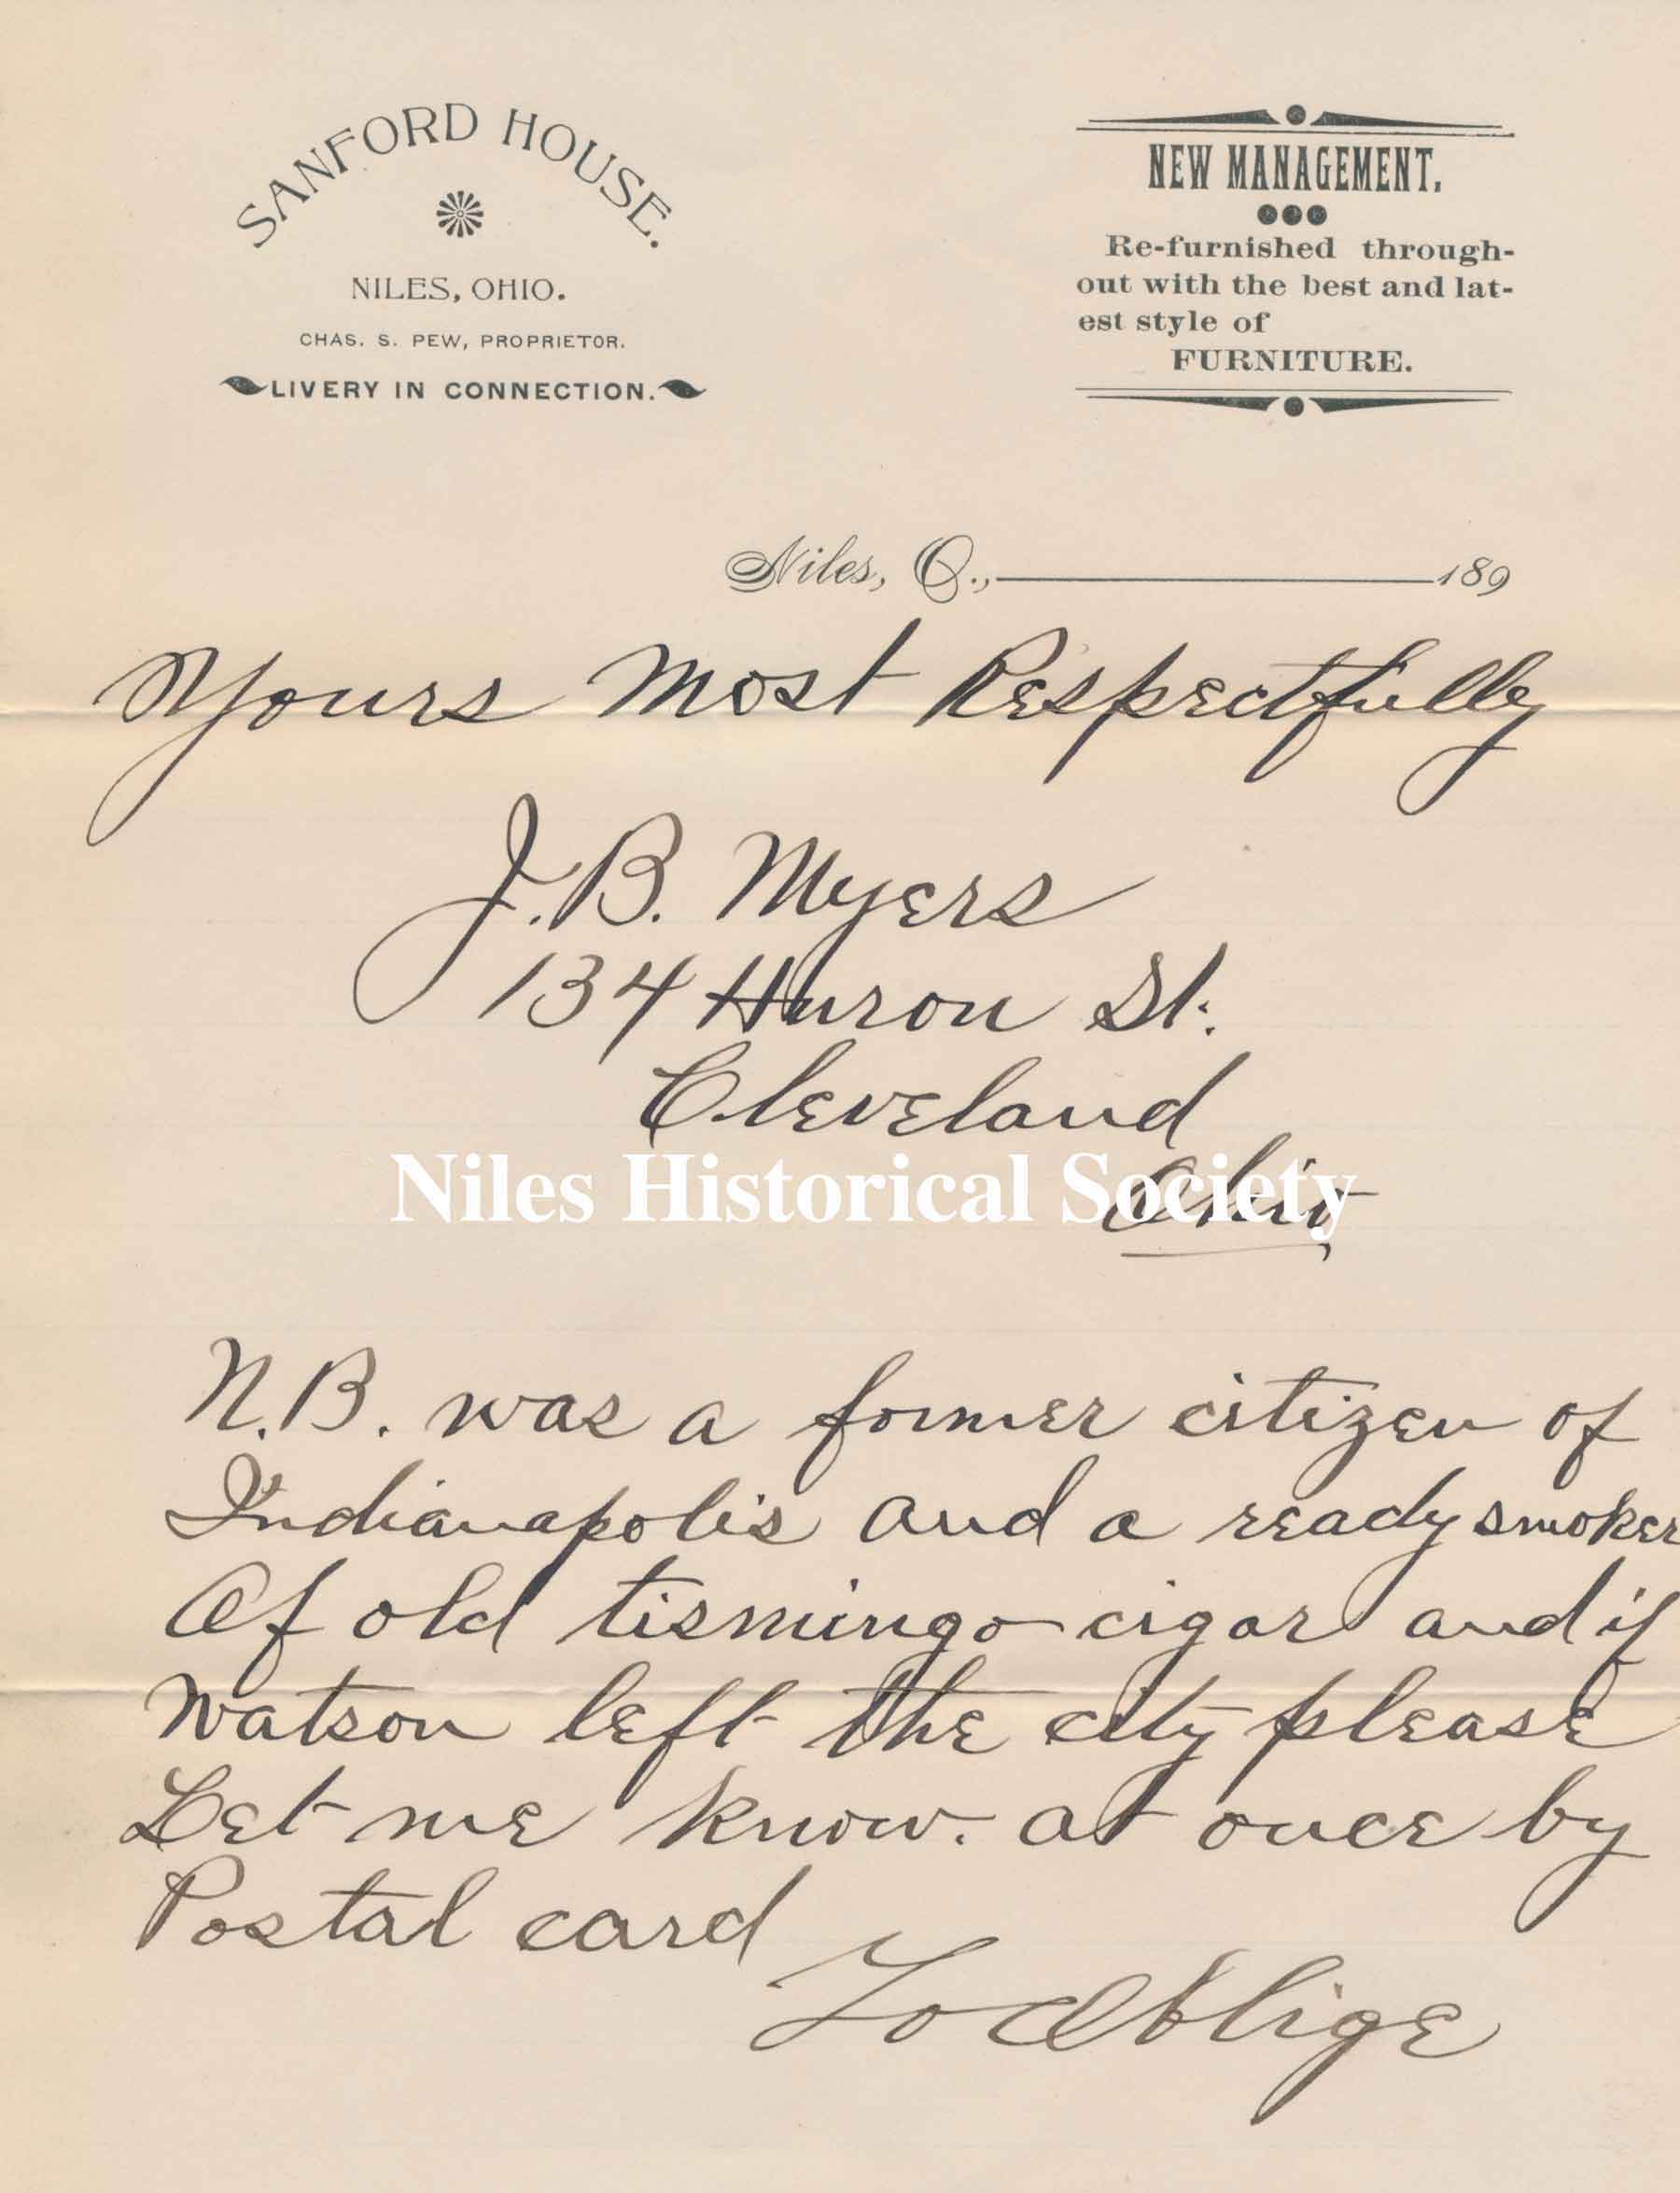 SANFORD HOUSE.
NILES, OHIO.
CHAS. S. PEW, PROPRIETOR.
LIVERY IN CONNECTION.
NEW MANAGEMENT.
Re-furnished through-
out with the best and lat-
est style of
FURNITURE.
Niles, O., 189
Yours Most Respectfully
J.B. Myers
134 Huron St.
Cleveland
Ohio
Niles Historical Society
N.B. was a former citizen of
Indianapolis and a ready smoker
Of old tismingo cigar and if
Watson left the city please
Let me know. at once by
Postal card
To Oblige